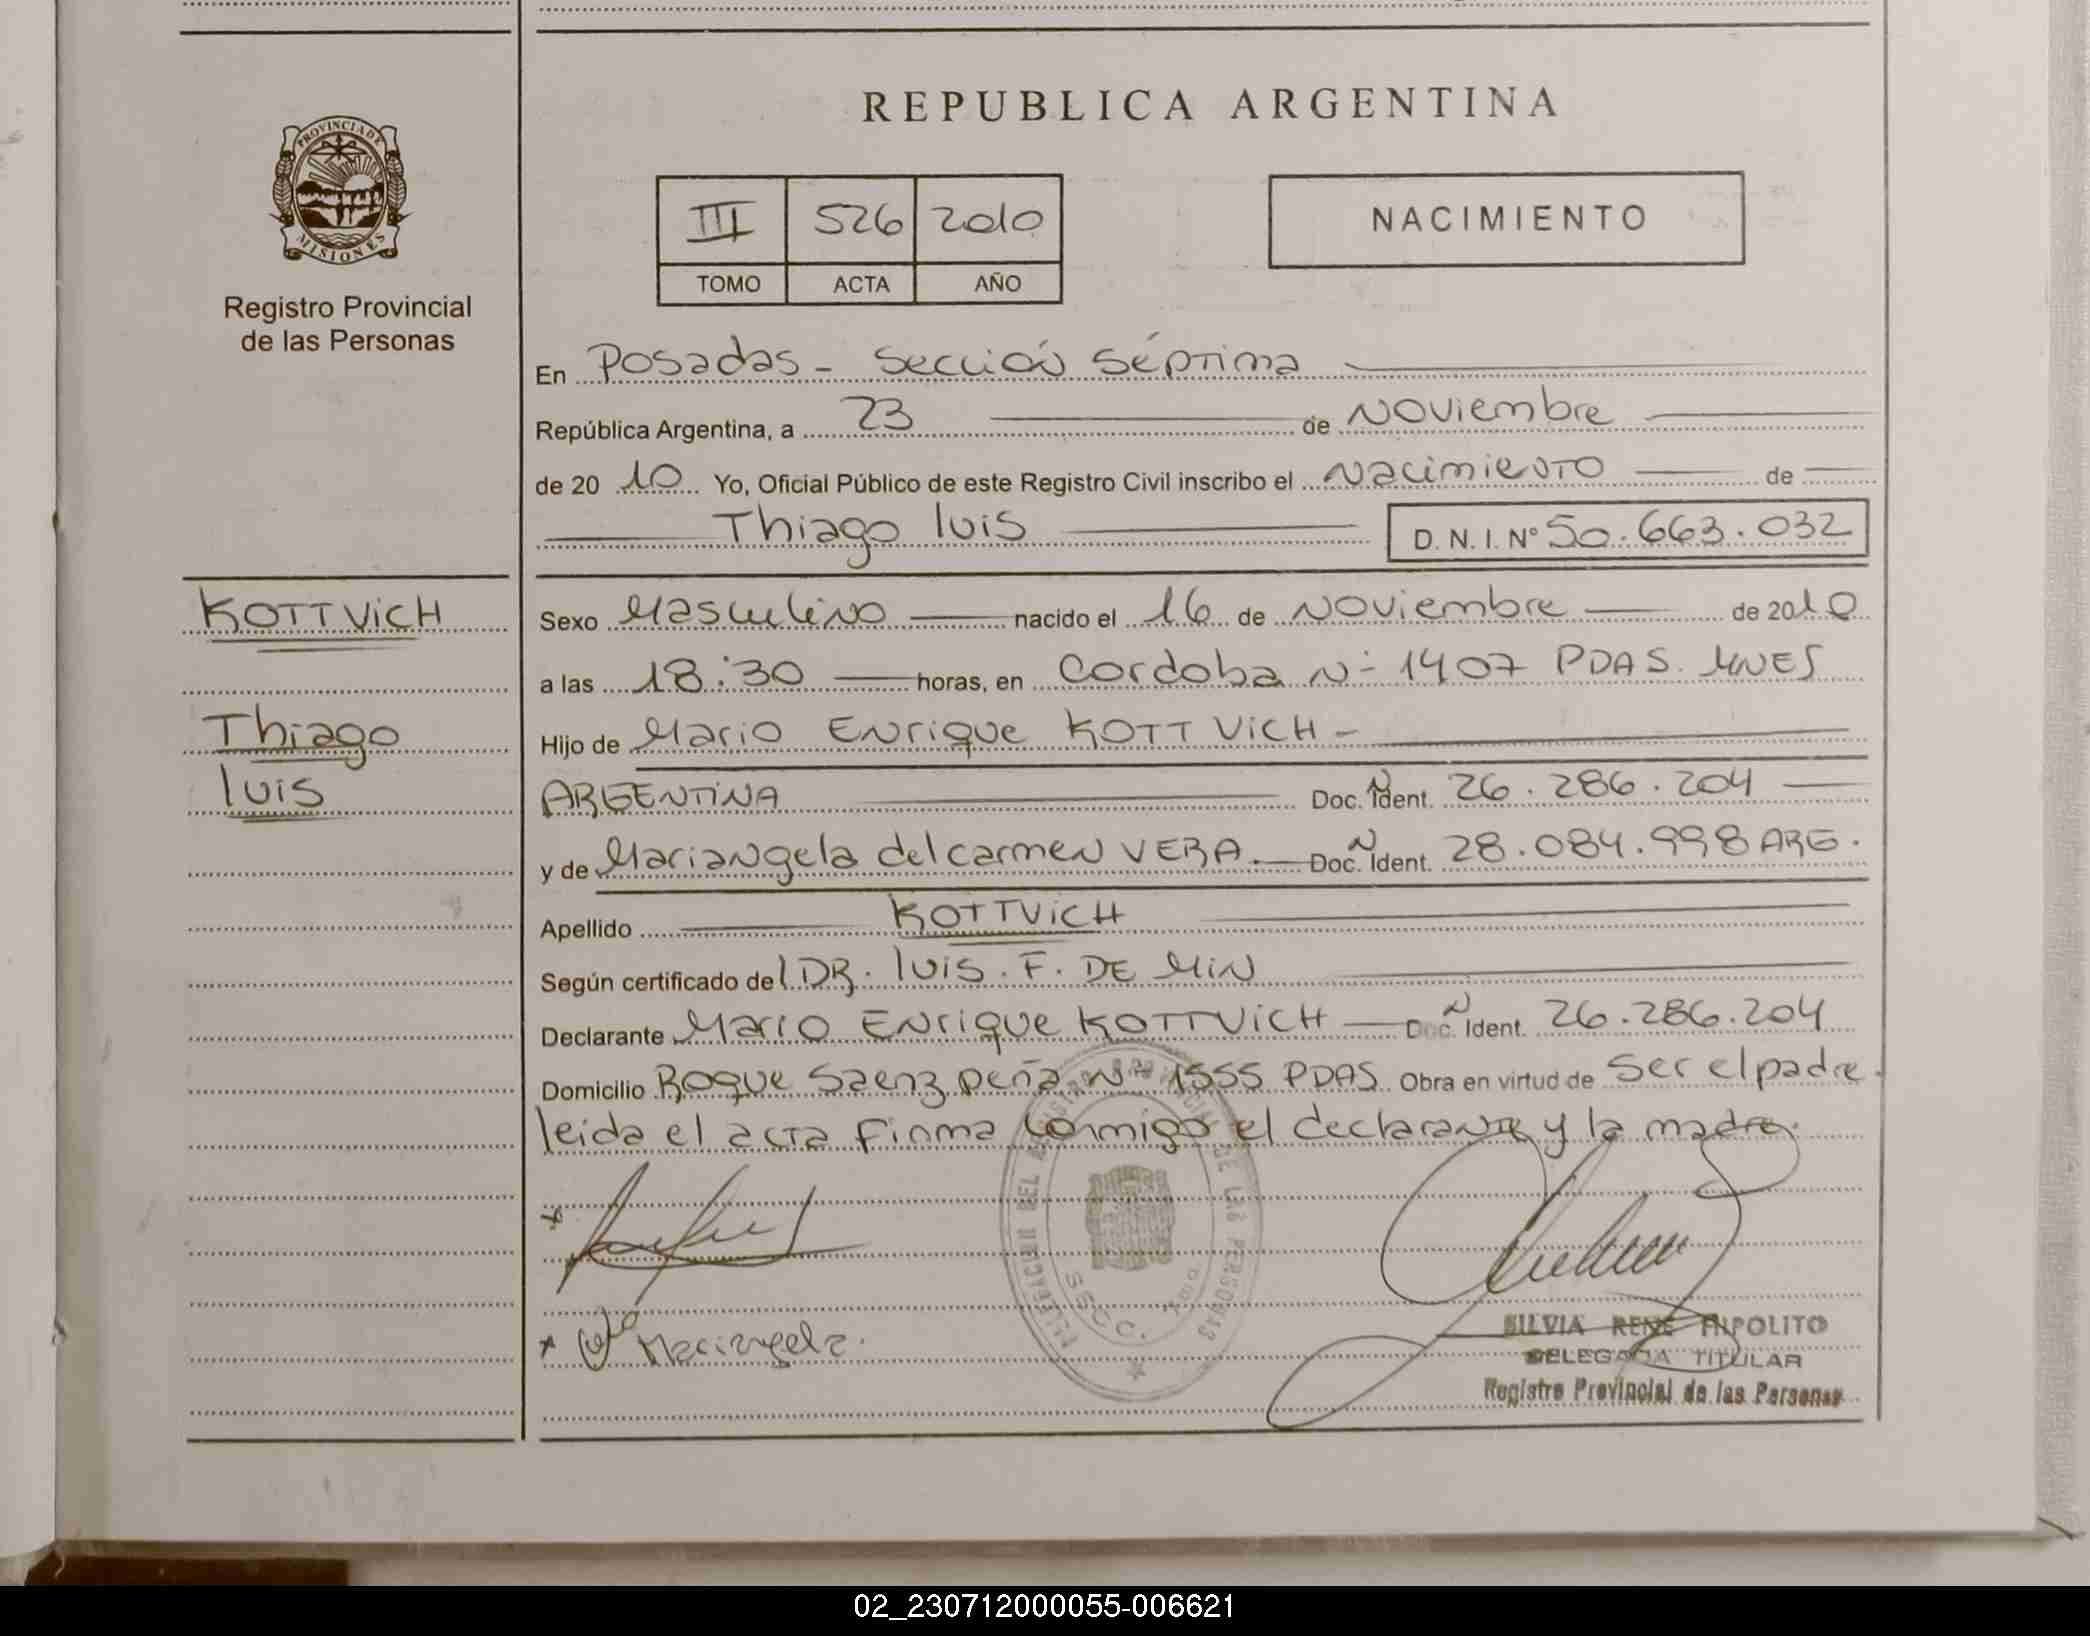 REPUBLICA ARGENTINA
PROVINCIA DE
MISIONES
Registro Provincial
de las Personas
III 526 2010
TOMO ACTA AÑO
NACIMIENTO
En Posadas - Sección Séptima
República Argentina, a 23 de Noviembre
de 2010 Yo, Oficial Público de este Registro Civil inscribo el Nacimiento de
Thiago luis D.N.I. Nº 50.663.032
KOTTVICH
Thiago
luis
Sexo Masculino nacido el 16 de Noviembre de 2010
a las 18:30 horas, en Cordoba Nº 1407 PDAS. MNES
Hijo de Mario Enrique KOTTVICH -
ARGENTINA Doc. N Ident. 26.286.204
y de Mariangela del carmen VERA. Doc. N Ident. 28.084.998 ARG.
Apellido KOTTVICH
Según certificado del DR. luis. F. DE MIN
Declarante Mario Enrique KOTTVICH Doc. N Ident. 26.286.204
Domicilio Roque Saenz peña Nº 1555 PDAS. Obra en virtud de ser el padre.
leida el acta firma conmigo el declarante y la madre.
DE LAS PERSONAS
SECC. 7ma.
Mariangela.
SILVIA RENÉ HIPOLITO
DELEGADA TITULAR
Registro Provincial de las Personas
02_230712000055-006621